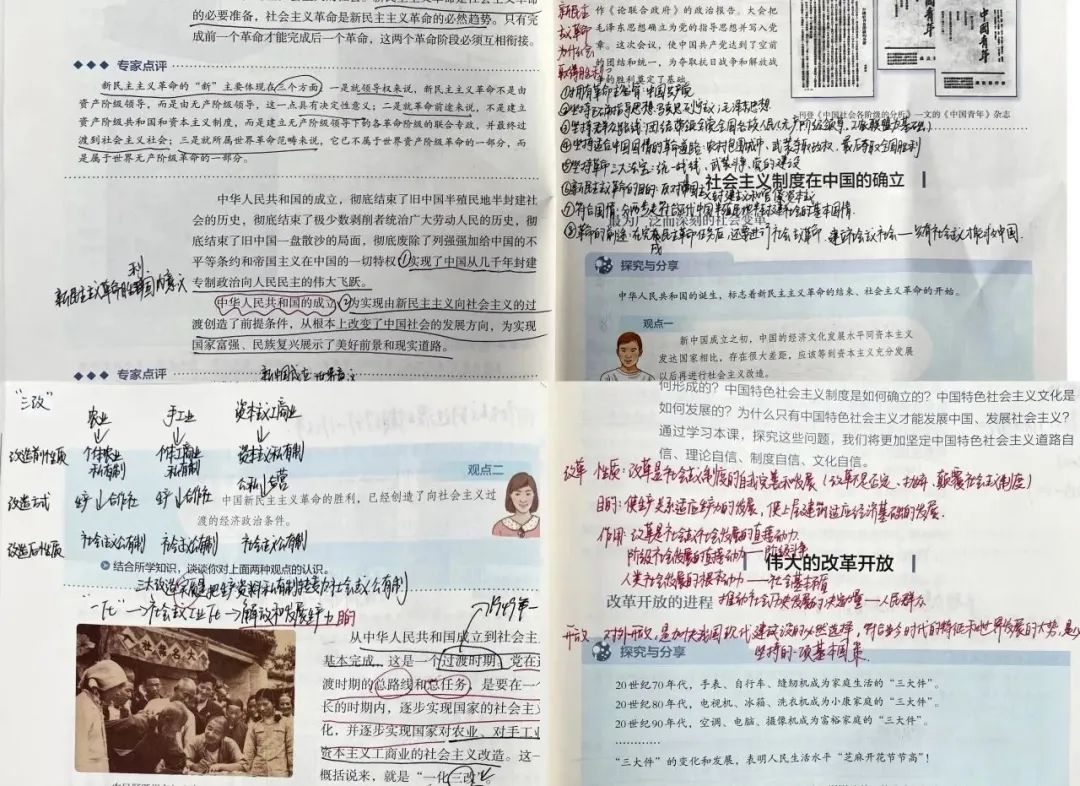 的必要准备，社会主义革命是新民主主义革命的必然趋势。只有完
成前一个革命才能完成后一个革命，这两个革命阶段必须互相衔接。
专家点评
新民主主义革命的“新”主要体现在三个方面：一是就领导权来说，新民主主义革命不是由
资产阶级领导，而是由无产阶级领导，这一点具有决定性意义；二是就革命前途来说，不是建立
资产阶级共和国和资本主义制度，而是建立无产阶级领导下的各革命阶级的联合专政，并最终过
渡到社会主义社会；三是就所属世界革命范畴来说，它已不属于世界资产阶级革命的一部分，而
是属于世界无产阶级革命的一部分。
中华人民共和国的成立，彻底结束了旧中国半殖民地半封建社
会的历史，彻底结束了极少数剥削者统治广大劳动人民的历史，彻
底结束了旧中国一盘散沙的局面，彻底废除了列强强加给中国的不
平等条约和帝国主义在中国的一切特权①实现了中国从几千年封建
专制政治向人民民主的伟大飞跃。
新民主主义革命胜利国内意义
中华人民共和国的成立②为实现由新民主主义向社会主义的过
渡创造了前提条件，从根本上改变了中国社会的发展方向，为实现
国家富强、民族复兴展示了美好前景和现实道路。
专家点评
新中国成立世界意义
作《论联合政府》的政治报告。大会把
毛泽东思想确立为党的指导思想并写入党
章。这次会议，使中国共产党达到了空前
的团结和统一，为夺取抗日战争和解放战
争的胜利奠定了基础。
新民主主义革命为什么会取得胜利？
中国青年
中国青年
刊登《中国社会各阶级的分析》一文的《中国青年》杂志
①拥有革命主心骨：中国共产党
②坚持正确指导思想：马克思列宁主义；毛泽东思想
④坚持适合中国国情的革命道路：农村包围城市，武装夺取政权，最后夺取全国胜利
⑤坚持革命三大法宝：统一战线、武装斗争、党的建设
社会主义制度在中国的确立
最为广泛而深刻的社会变革
探究与分享
中华人民共和国的诞生，标志着新民主主义革命的结束、社会主义革命的开始。
观点一
新中国成立之初，中国的经济文化发展水平同资本主义
发达国家相比，存在很大差距，应该等到资本主义充分发展
以后再进行社会主义改造。
“三改”
农业 手工业 资本主义工商业
改造前性质 个体农业私有制 个体工商业私有制 资本主义私有制
改造方式 生产合作社 生产合作社 公私合营
改造后性质 社会主义公有制 社会主义公有制 社会主义公有制
观点二
中国新民主主义革命的胜利，已经创造了向社会主义过
渡的经济政治条件。
结合所学知识，谈谈你对上面两种观点的认识。
三大改造实质是把生产资料私有制转变为社会主义公有制
“一化”→社会主义工业化→解放和发展生产力 目的
1949年—
从中华人民共和国成立到社会主
基本完成，这是一个过渡时期。党在过
渡时期的总路线和总任务，是要在一个
长的时期内，逐步实现国家的社会主义
化，并逐步实现国家对农业、对手工业
资本主义工商业的社会主义改造。这一
概括说来，就是“一化三改”。
何形成的？中国特色社会主义制度是如何确立的？中国特色社会主义文化是
如何发展的？为什么只有中国特色社会主义才能发展中国、发展社会主义？
通过学习本课，探究这些问题，我们将更加坚定中国特色社会主义道路自
信、理论自信、制度自信、文化自信。
改革 性质：改革是社会主义制度的自我完善和发展（改革不是否定、抛弃、颠覆社会主义制度）
目的：使生产关系适应生产力的发展，使上层建筑适应经济基础的发展。
作用：改革是社会主义社会发展的直接动力
阶级社会发展的直接动力——阶级斗争
伟大的改革开放
人类社会发展的根本动力——社会基本矛盾
改革开放的进程
推动社会历史发展的决定力量——人民群众
开放 对外开放，是加快我国现代化建设的必然选择，符合当今时代的特征和世界发展的大势，是必
坚持的一项基本国策。
探究与分享
20世纪70年代，手表、自行车、缝纫机成为家庭生活的“三大件”。
20世纪80年代，电视机、冰箱、洗衣机成为小康家庭的“三大件”。
20世纪90年代，空调、电脑、摄像机成为富裕家庭的“三大件”。
…………
“三大件”的变化和发展，表明人民生活水平“芝麻开花节节高”！